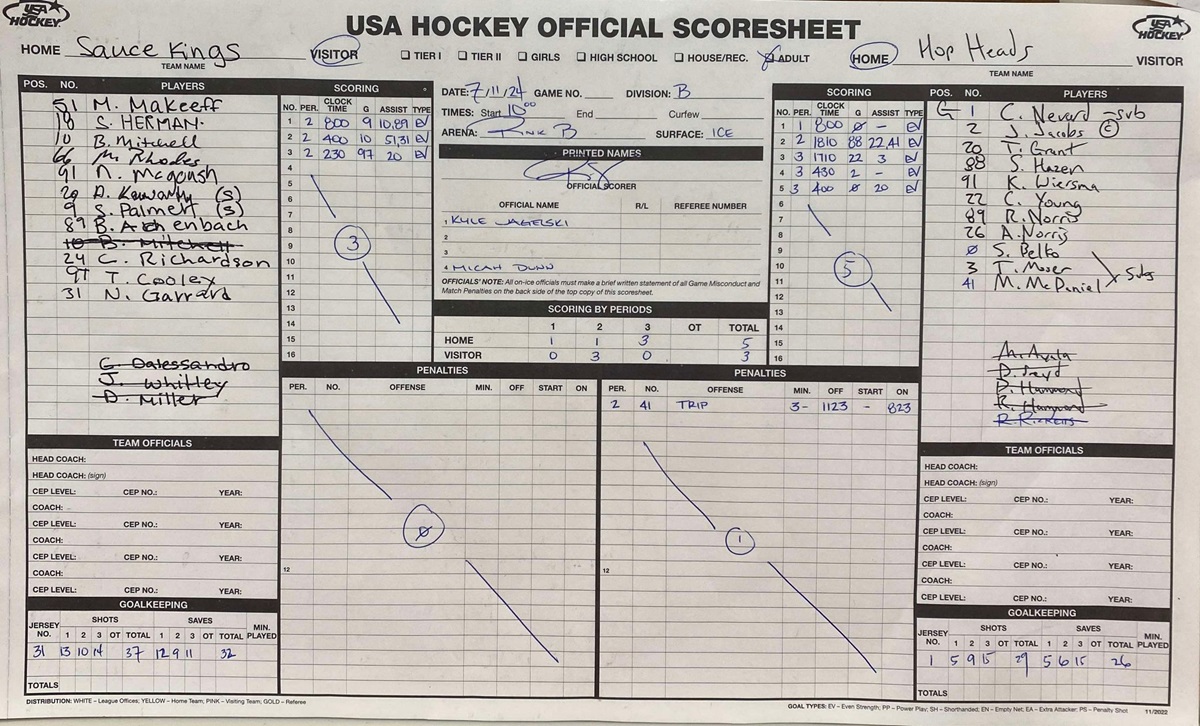 USA HOCKEY
USA HOCKEY OFFICIAL SCORESHEET
USA HOCKEY
HOME Sauce Kings VISITOR
TEAM NAME
☐ TIER I ☐ TIER II ☐ GIRLS ☐ HIGH SCHOOL ☐ HOUSE/REC. ☒ ADULT
HOME Hop Heads VISITOR
TEAM NAME
POS. NO. PLAYERS
51 M. Makeeff
18 S. HERMAN
10 B. Mitchell
66 M. Rhodes
91 N. Mcgoush
20 D. (S)
9 S. Palmert (S)
89 B. Aschenbach
10 B. Mitchell
24 C. Richardson
97 T. Cooley
31 N. Garrard
G. Dalessandro
J. Whitley
D. Miller
SCORING
NO. PER. CLOCK TIME G ASSIST TYPE
1 2 800 9 10,89 EV
2 2 400 10 51,31 EV
3 2 230 97 20 EV
4
5
6
7
8
9
10
11
12
13
14
15
16
3
DATE: 7/11/24 GAME NO. DIVISION: B
TIMES: Start 10:00 End Curfew
ARENA: Rink B SURFACE: ICE
PRINTED NAMES
OFFICIAL SCORER
OFFICIAL NAME R/L REFEREE NUMBER
1 KYLE JAGELSKI
2
3
4 MICAH DUNN
OFFICIALS' NOTE: All on-ice officials must make a brief written statement of all Game Misconduct and
Match Penalties on the back side of the top copy of this scoresheet.
SCORING BY PERIODS
1 2 3 OT TOTAL
HOME 1 1 3 5
VISITOR 0 3 0 3
SCORING
NO. PER. CLOCK TIME G ASSIST TYPE
1 1 800 Ø - EV
2 2 1810 88 22,41 EV
3 3 1710 22 3 EV
4 3 430 2 - EV
5 3 400 Ø 20 EV
6
7
8
9
10
11
12
13
14
15
16
5
POS. NO. PLAYERS
G 1 C. Nevard -sub
2 J. Jacobs C
20 T. Grant
88 S. Hazen
91 K. Wiersma
22 C. Young
89 R. Norris
26 A. Norris
Ø S. Belko
3 T. Moser
41 M. McDaniel
Subs
A. Ayala
D. Hammond
R. Hammond
R. Ricketts
PENALTIES
PER. NO. OFFENSE MIN. OFF START ON
12
Ø
PENALTIES
PER. NO. OFFENSE MIN. OFF START ON
2 41 TRIP 3- 1123 - 823
12
1
TEAM OFFICIALS
HEAD COACH:
HEAD COACH: (sign)
CEP LEVEL: CEP NO.: YEAR:
COACH:
CEP LEVEL: CEP NO.: YEAR:
COACH:
CEP LEVEL: CEP NO.: YEAR:
COACH:
CEP LEVEL: CEP NO.: YEAR:
GOALKEEPING
JERSEY NO. SHOTS SAVES MIN. PLAYED
1 2 3 OT TOTAL 1 2 3 OT TOTAL
31 13 10 14 37 12 9 11 32
TOTALS
TEAM OFFICIALS
HEAD COACH:
HEAD COACH: (sign)
CEP LEVEL: CEP NO.: YEAR:
COACH:
CEP LEVEL: CEP NO.: YEAR:
COACH:
CEP LEVEL: CEP NO.: YEAR:
COACH:
CEP LEVEL: CEP NO.: YEAR:
GOALKEEPING
JERSEY NO. SHOTS SAVES MIN. PLAYED
1 2 3 OT TOTAL 1 2 3 OT TOTAL
1 5 9 15 29 5 6 15 26
TOTALS
DISTRIBUTION: WHITE – League Offices; YELLOW – Home Team; PINK – Visiting Team; GOLD – Referee
GOAL TYPES: EV – Even Strength; PP – Power Play; SH – Shorthanded; EN – Empty Net; EA – Extra Attacker; PS – Penalty Shot 11/2022